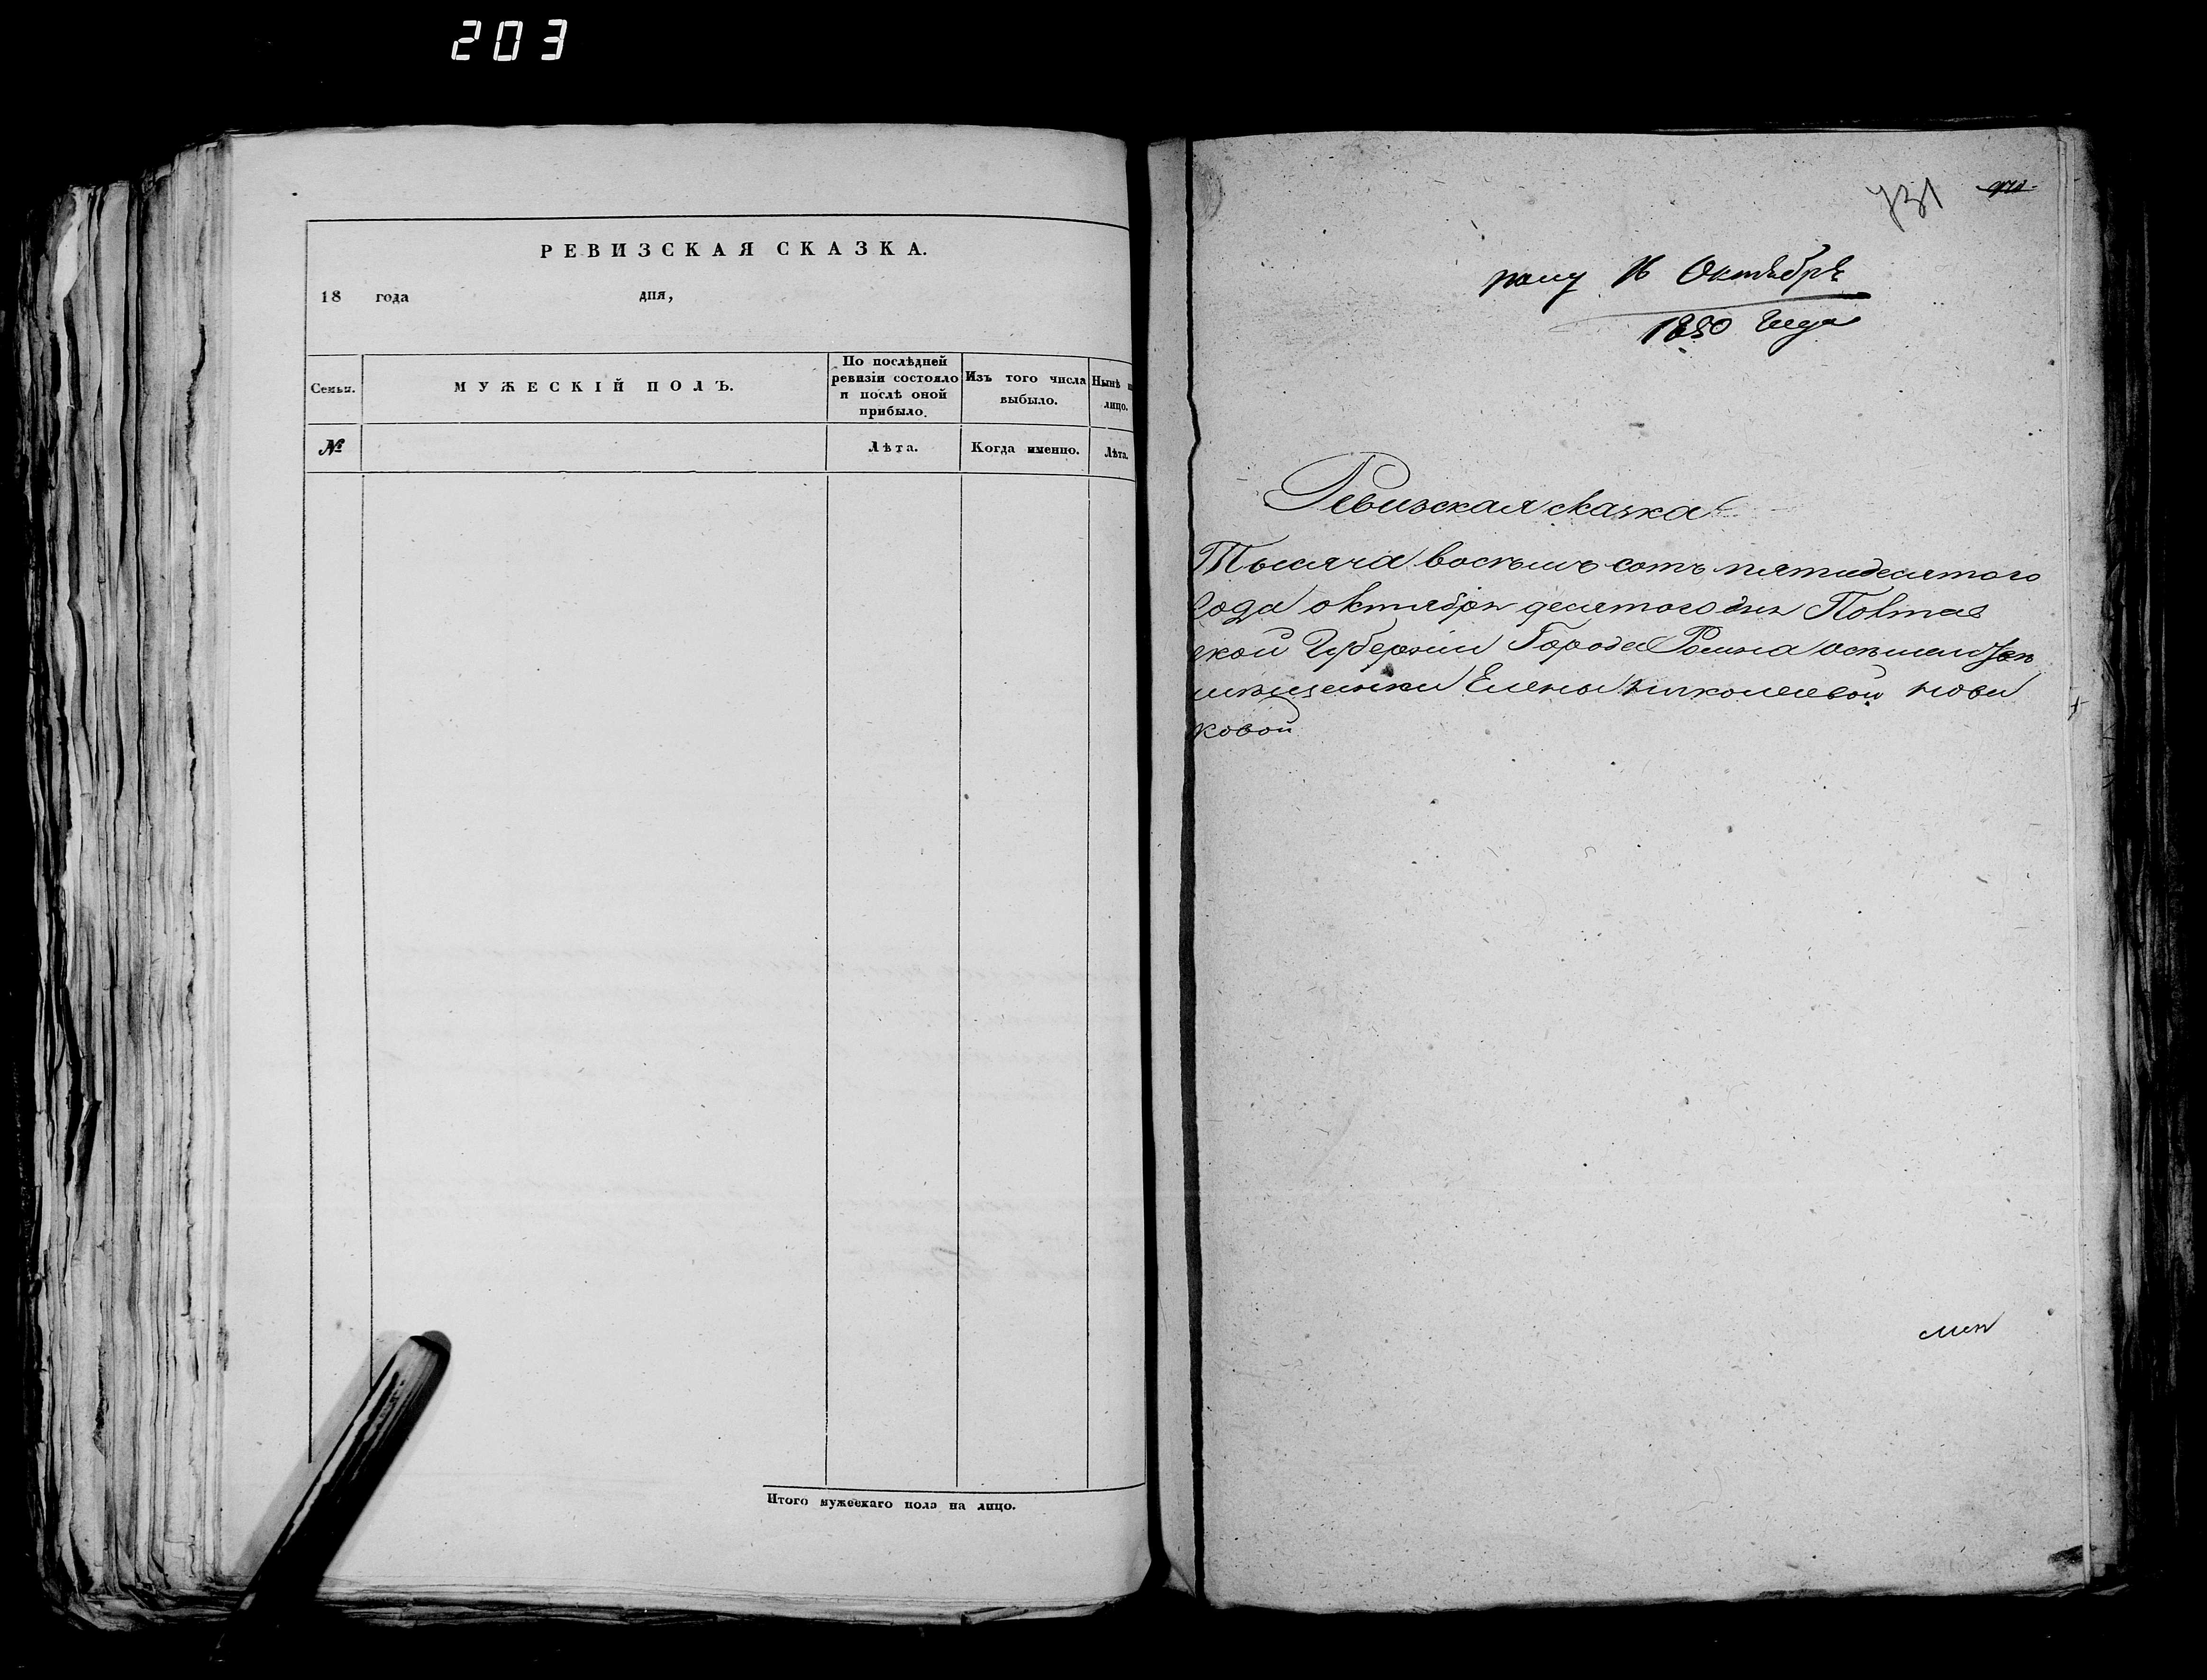 203
РЕВИЗСКАЯ СКАЗКА.
18 года дня,
Семьи.
МУЖЕСКІЙ ПОЛЪ.
По послѣдней
ревизіи состояло
и послѣ оной
прибыло.
Изъ того числа
выбыло.
Нынѣ н
лицо.
№
Лѣта.
Когда именно.
Лѣта.
Итого мужескаго пола на лицо.
731
16 Октября
1850 года
Ревизская сказка
Тысяча восемь сотъ пятидесятого
года октября десятого дня Полтав
ской Губерніи Города Ромна
мѣщанки Елены Николаевой Нови
ковой